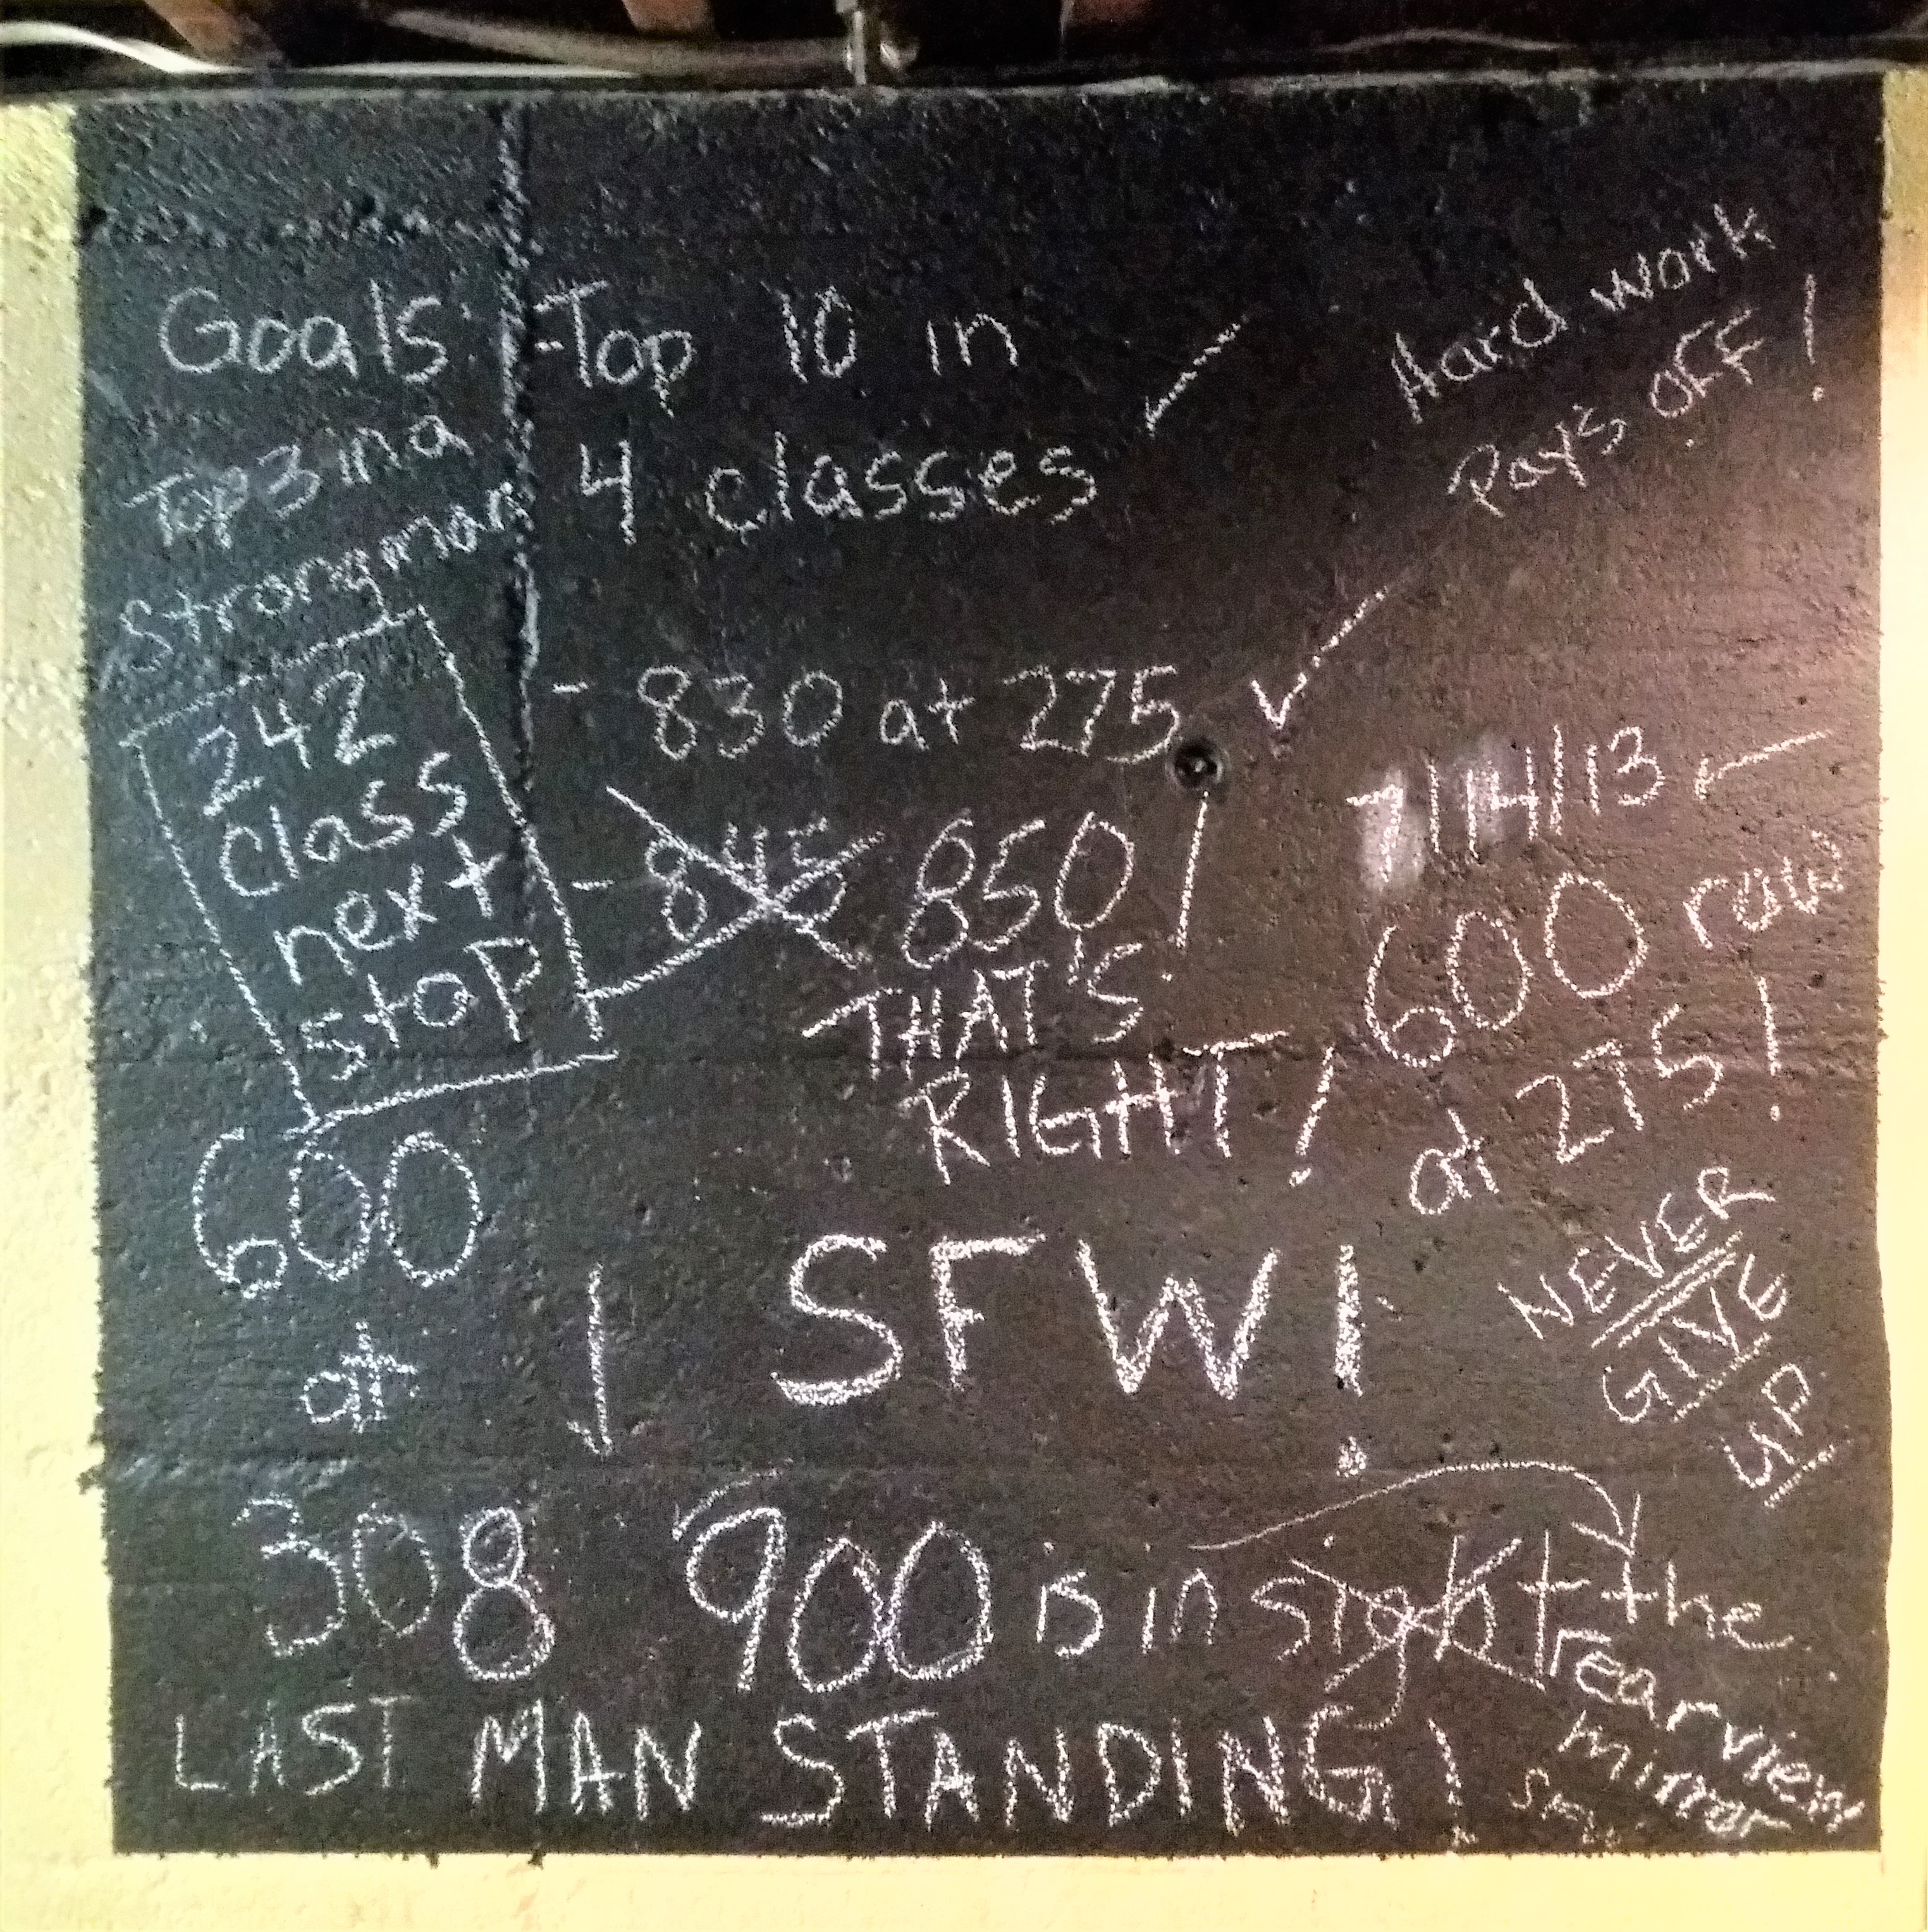 Goals:
-Top 10 in
4 classes
Hard work
Pays off!
Top 3 in a
Strongman
- 830 at 275
242
Class
next
stop
- 845 850!
THAT'S
RIGHT!
7/14/13
600 raw
at 275!
600
at
308
SFW!
NEVER
GIVE
UP
900 is in sight the
rearview
mirror
LAST MAN STANDING!